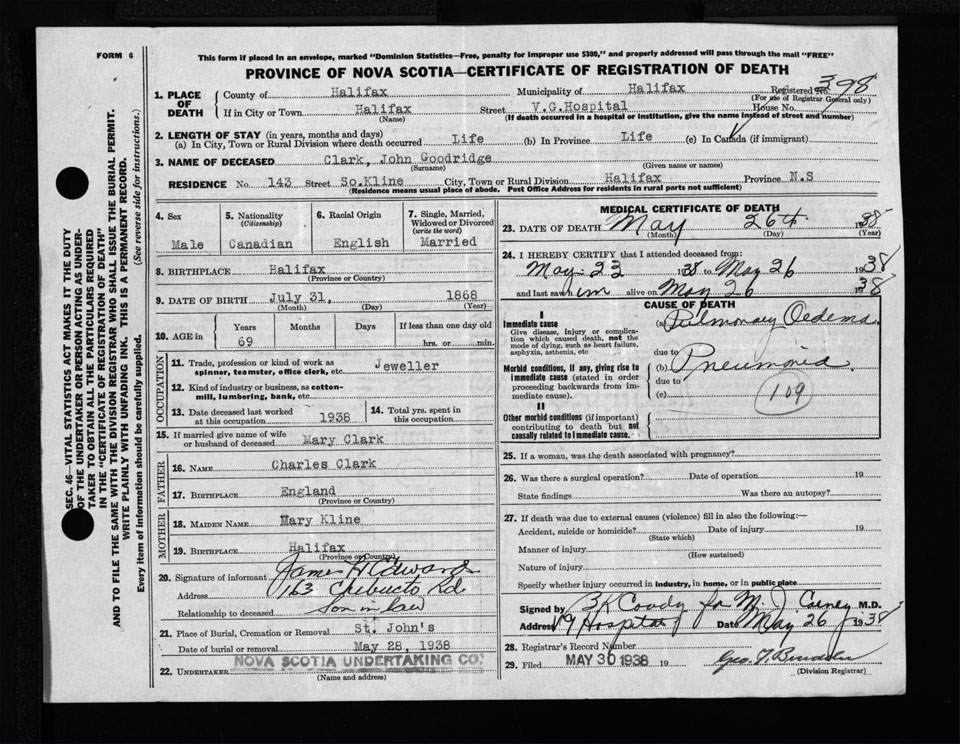 FORM 6
This form if placed in an envelope, marked "Dominion Statistics—Free, penalty for improper use $300," and properly addressed will pass through the mail "FREE"
PROVINCE OF NOVA SCOTIA—CERTIFICATE OF REGISTRATION OF DEATH
1. PLACE OF DEATH
County of Halifax Municipality of Halifax Registered No. 398
(For use of Registrar General only)
If in City or Town Halifax Street V.G.Hospital House No.
(Name) (If death occurred in a hospital or institution, give the name instead of street and number)
2. LENGTH OF STAY (in years, months and days)
(a) In City, Town or Rural Division where death occurred Life (b) In Province Life (c) In Canada (if immigrant)
3. NAME OF DECEASED Clark, John Goodridge
(Surname) (Given name or names)
RESIDENCE No 143 Street So.Kline City, Town or Rural Division Halifax Province N.S
(Residence means usual place of abode. Post Office Address for residents in rural parts not sufficient)
4. Sex
Male
5. Nationality
(Citizenship)
Canadian
6. Racial Origin
English
7. Single, Married, Widowed or Divorced
(write the word)
Married
8. BIRTHPLACE Halifax
(Province or Country)
9. DATE OF BIRTH July 31, 1868
(Month) (Day) (Year)
10. AGE in
Years Months Days If less than one day old
69 hrs. or min.
OCCUPATION
11. Trade, profession or kind of work as
spinner, teamster, office clerk, etc. Jeweller
12. Kind of industry or business, as cotton-
mill, lumbering, bank, etc.
13. Date deceased last worked
at this occupation 1938
14. Total yrs. spent in
this occupation
15. If married give name of wife
or husband of deceased Mary Clark
FATHER
16. NAME Charles Clark
17. BIRTHPLACE England
(Province or Country)
MOTHER
18. MAIDEN NAME Mary Kline
19. BIRTHPLACE Halifax
(Province or Country)
20. Signature of informant James H Edwards
Address 163 Chebucto Rd
Relationship to deceased Son in law
21. Place of Burial, Cremation or Removal St. John's
Date of burial or removal May 28, 1938
22. UNDERTAKER NOVA SCOTIA UNDERTAKING CO.
(Name and address)
MEDICAL CERTIFICATE OF DEATH
23. DATE OF DEATH May 26th 1938
(Month) (Day) (Year)
24. I HEREBY CERTIFY that I attended deceased from:
May 23 1938 to May 26 1938
and last saw him alive on May 26 1938
CAUSE OF DEATH
I
Immediate cause
Give disease, injury or complica-
tion which caused death, not the
mode of dying, such as heart failure,
asphyxia, asthenia, etc
(a) Pulmonary Oedema
due to
Morbid conditions, if any, giving rise to
immediate cause (stated in order
proceeding backwards from im-
mediate cause).
(b) Pneumonia
due to
(c) 109
II
Other morbid conditions (if important)
contributing to death but not
causally related to immediate cause.
25. If a woman, was the death associated with pregnancy?
26. Was there a surgical operation? Date of operation 19
State findings Was there an autopsy?
27. If death was due to external causes (violence) fill in also the following:—
Accident, suicide or homicide? Date of injury 19
(State which)
Manner of injury
(How sustained)
Nature of injury
Specify whether injury occurred in industry, in home, or in public place
Signed by for M. J. M.D.
Address Hospital Date May 26 1938
28. Registrar's Record Number
29. Filed MAY 30 1938 19
(Division Registrar)
SEC. 46—VITAL STATISTICS ACT MAKES IT THE DUTY
OF THE UNDERTAKER OR PERSON ACTING AS UNDER-
TAKER TO OBTAIN ALL THE PARTICULARS REQUIRED
IN THE "CERTIFICATE OF REGISTRATION OF DEATH"
AND TO FILE THE SAME WITH THE DIVISION REGISTRAR WHO SHALL ISSUE THE BURIAL PERMIT.
WRITE PLAINLY WITH UNFADING INK. THIS IS A PERMANENT RECORD.
Every item of information should be carefully supplied. (See reverse side for instructions.)